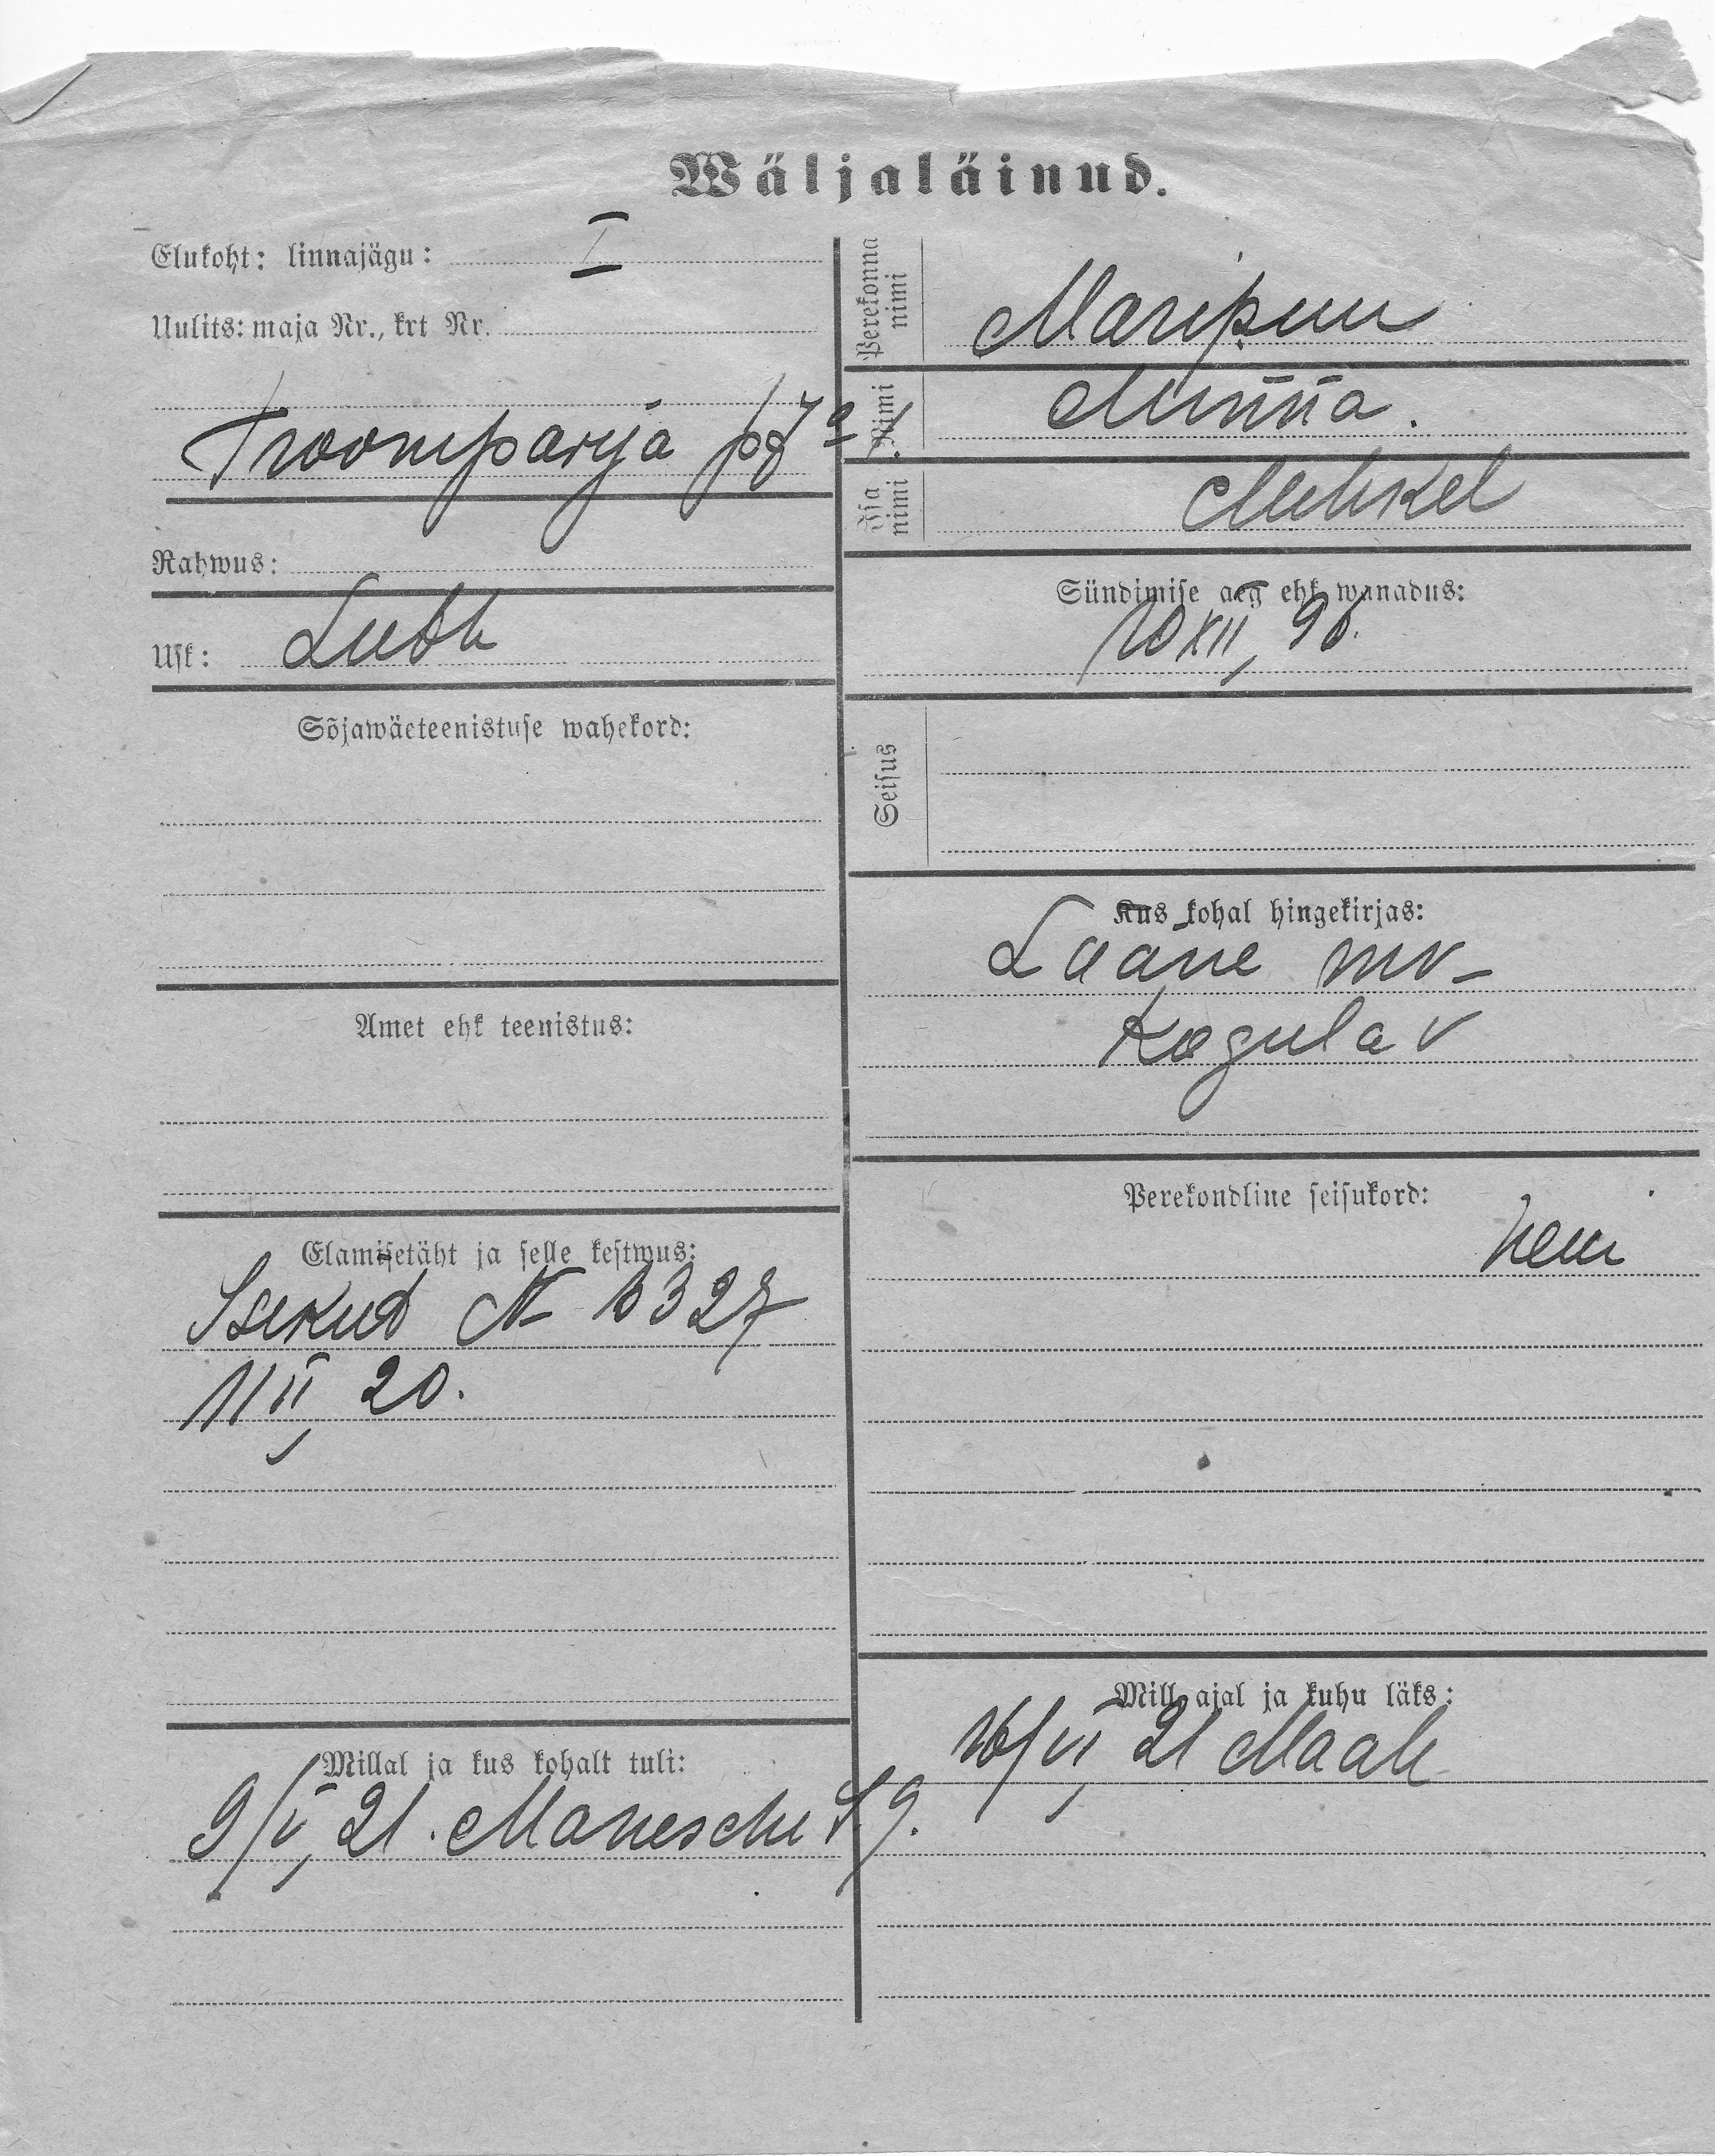 Wäljaläinud.
Elukoht: linnajägu: I
Uulits: maja Nr., krt Nr.
Troomparja
Rahwus:
Usk: Luth
Sõjawäeteenistuse wahekord:
Amet ehk teenistus:
Elamisetäht ja selle kestwus:
Isikud № 3327
11 II 20.
Millal ja kus kohalt tuli:
9/V, 21. Maneschi 19.
Perekonna nimi
Maripuu
Nimi
Minna.
Isa nimi
Mihkel
Sündimise aeg ehk wanadus:
20 XII, 96.
Seisus
Kus kohal hingekirjas:
Lääne mk-
Kogula v
Perekondline seisukord:
neiu
Mill ajal ja kuhu läks:
16/VI, 21 Maale